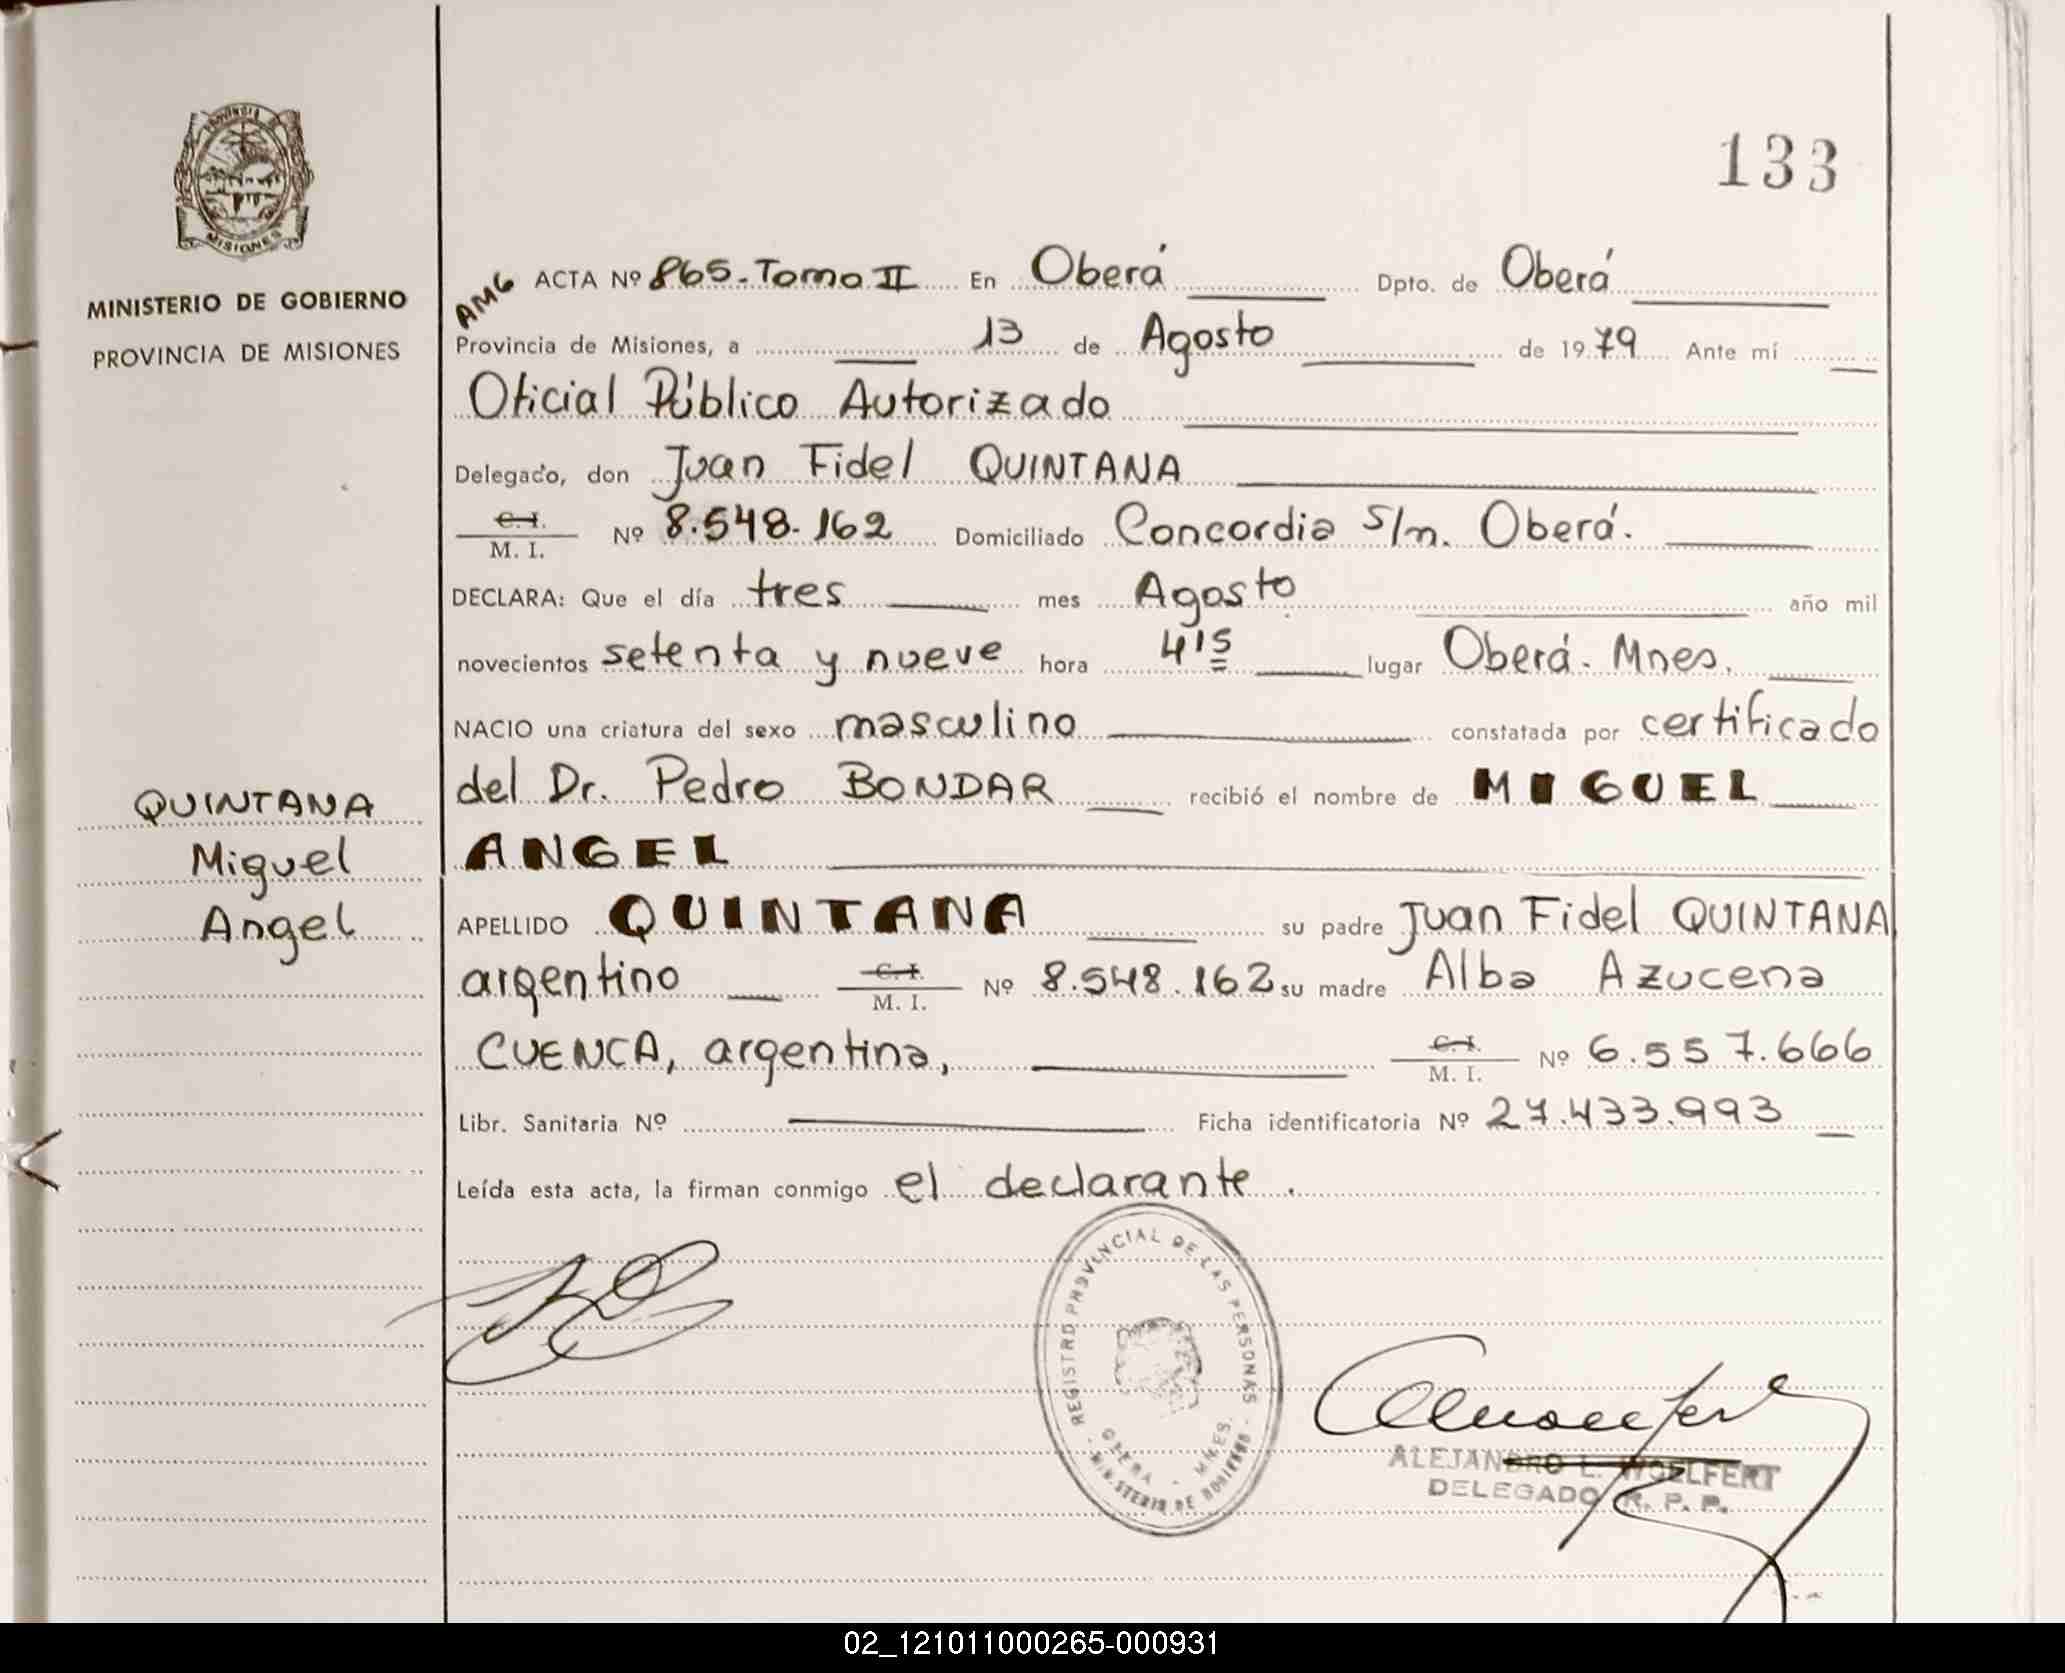 133
PROVINCIA DE
MISIONES
MINISTERIO DE GOBIERNO
PROVINCIA DE MISIONES
AMG ACTA Nº 865. Tomo II En Oberá Dpto. de Oberá
Provincia de Misiones, a 13 de Agosto de 1979 Ante mí
Oficial Público Autorizado
Delegado, don Juan Fidel QUINTANA
C. I.
M. I. Nº 8.548.162 Domiciliado Concordia s/n. Oberá.
DECLARA: Que el día tres mes Agosto año mil
novecientos setenta y nueve hora 4 15 lugar Oberá. Mnes.
NACIO una criatura del sexo masculino constatada por certificado
del Dr. Pedro BONDAR recibió el nombre de MIGUEL
ANGEL
QUINTANA
Miguel
Angel
APELLIDO QUINTANA su padre Juan Fidel QUINTANA
argentino C. I.
M. I. Nº 8.548.162 su madre Alba Azucena
CUENCA, argentina, C. I.
M. I. Nº 6.557.666
Libr. Sanitaria Nº Ficha identificatoria Nº 27.433.993
Leída esta acta, la firman conmigo el declarante.
REGISTRO PROVINCIAL DE LAS PERSONAS
OBERA - MNES.
MINISTERIO DE GOBIERNO
ALEJANDRO L. WOELFERT
DELEGADO R. P. P.
02_121011000265-000931